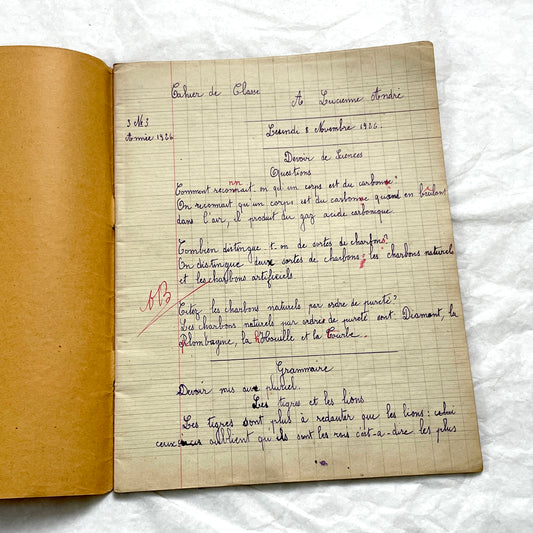 Cahier de Classe
A Lucienne André
3 N° 3
Année 1926
Lesindi 8 Novembre 1926.
Devoir de Sciences
Questions
Comment reconnait-on qu'un corps est du carbone?
nn
On reconnait qu'un corps est du carbone quand en brûlant
dans l'air, il produit du gaz acide carbonique.
Combien distingue-t-on de sortes de charbons?
On distingue deux sortes de charbons: les charbons naturels
et les charbons artificiels
AB
Citez les charbons naturels par ordre de pureté?
Les charbons naturels par ordre de pureté sont Diamant, la
Plombagine, la Houille et la Tourbe.
Grammaire
Devoir mis au pluriel.
Les tigres et les lions
Les tigres sont plus à redouter que les lions:
ceux-ci oublient qu'ils sont les rois c'est-a-dire les plus